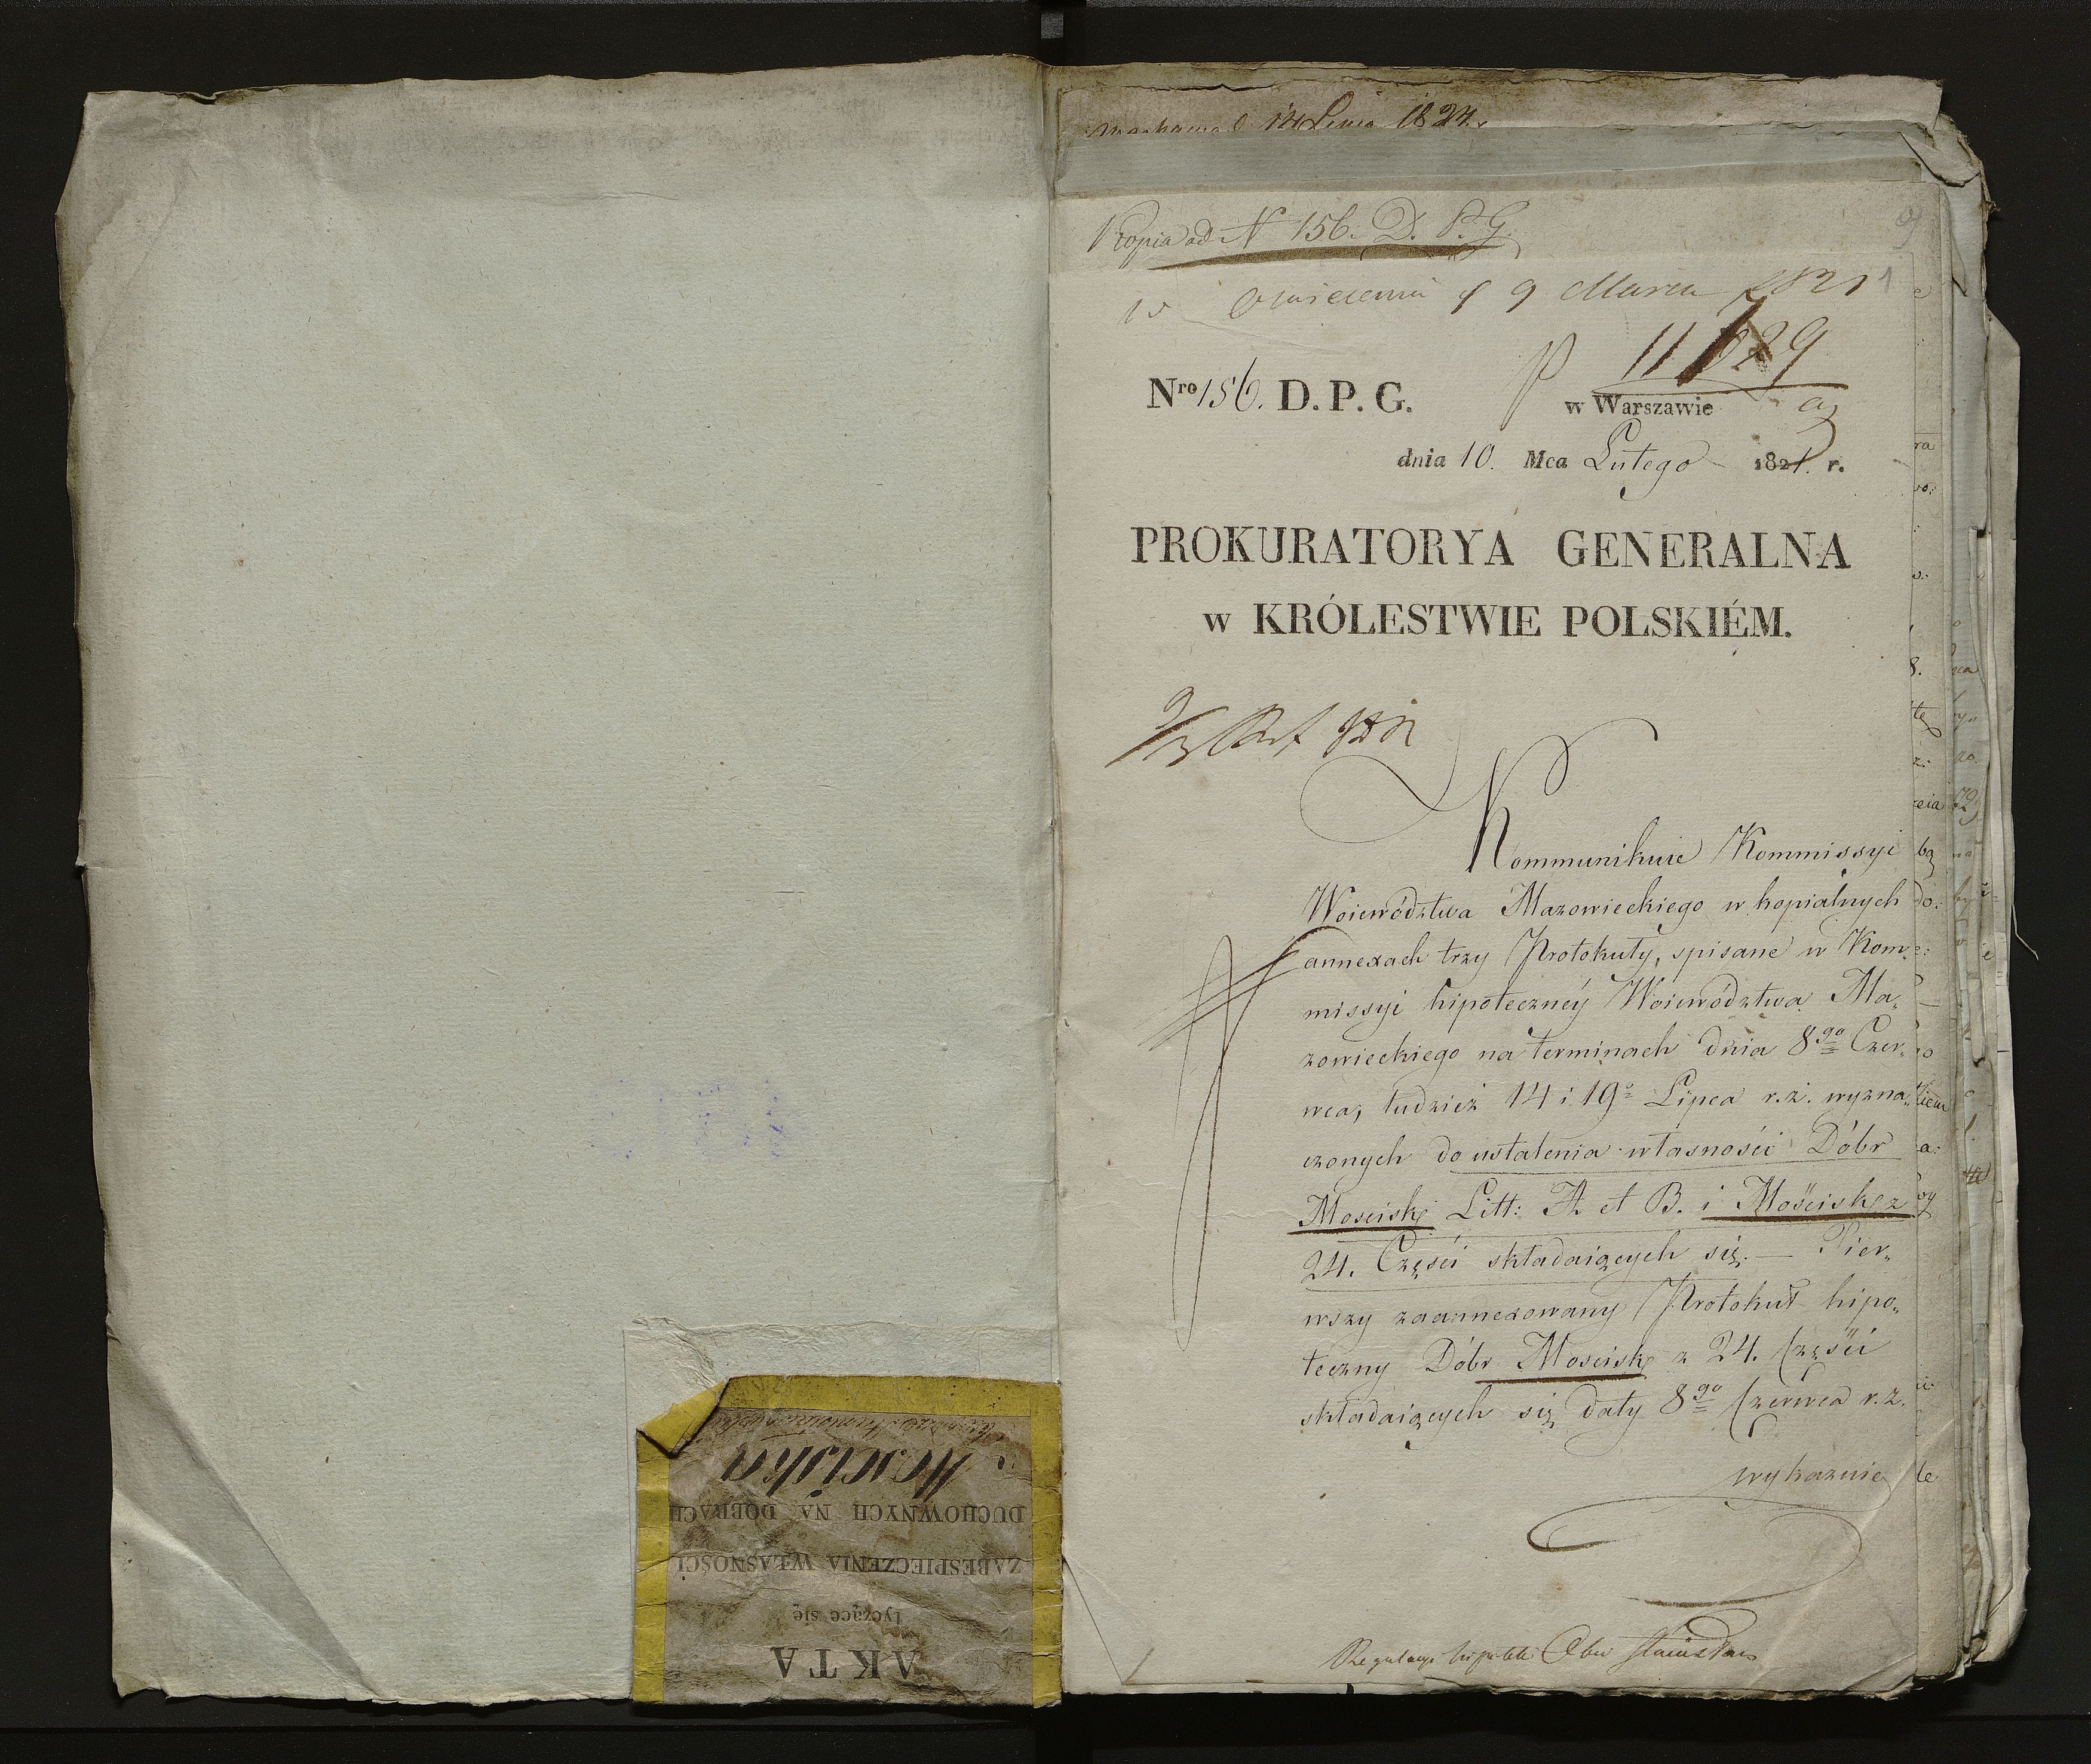 1824.
Kopia ad N 156. D. P. G.
9 Marca 1821
1
Nro 156. D. P. G.
w Warszawie
dnia 10. Mca Lutego 1821. r.
PROKURATORYA GENERALNA
w KRÓLESTWIE POLSKIÉM.
Kommunikuie Kommissyi
Woiewództwa Mazowieckiego w kopialnych
annexach trzy Protokuły, spisane w Kom-
missyi hipoteczney Woiewództwa Ma-
zowieckiego na terminach dnia 8go Czer-
wca, tudzież 14 i 19o Lipca r. z. wyzna-
czonych do ustalenia własności Dóbr
Mościsk Litt: A et B. i Mościsk z
24. Części składaiących się. — Pier-
wszy zaannexowany Protokuł hipo-
teczny Dóbr Mościsk z 24. Części
składaiących się daty 8go Czerwca r. z.
wykazuie
AKTA
tyczące się
ZABESPIECZENIA WŁASNOŚCI
DUCHOWNYCH NA DOBRACH
Mościska